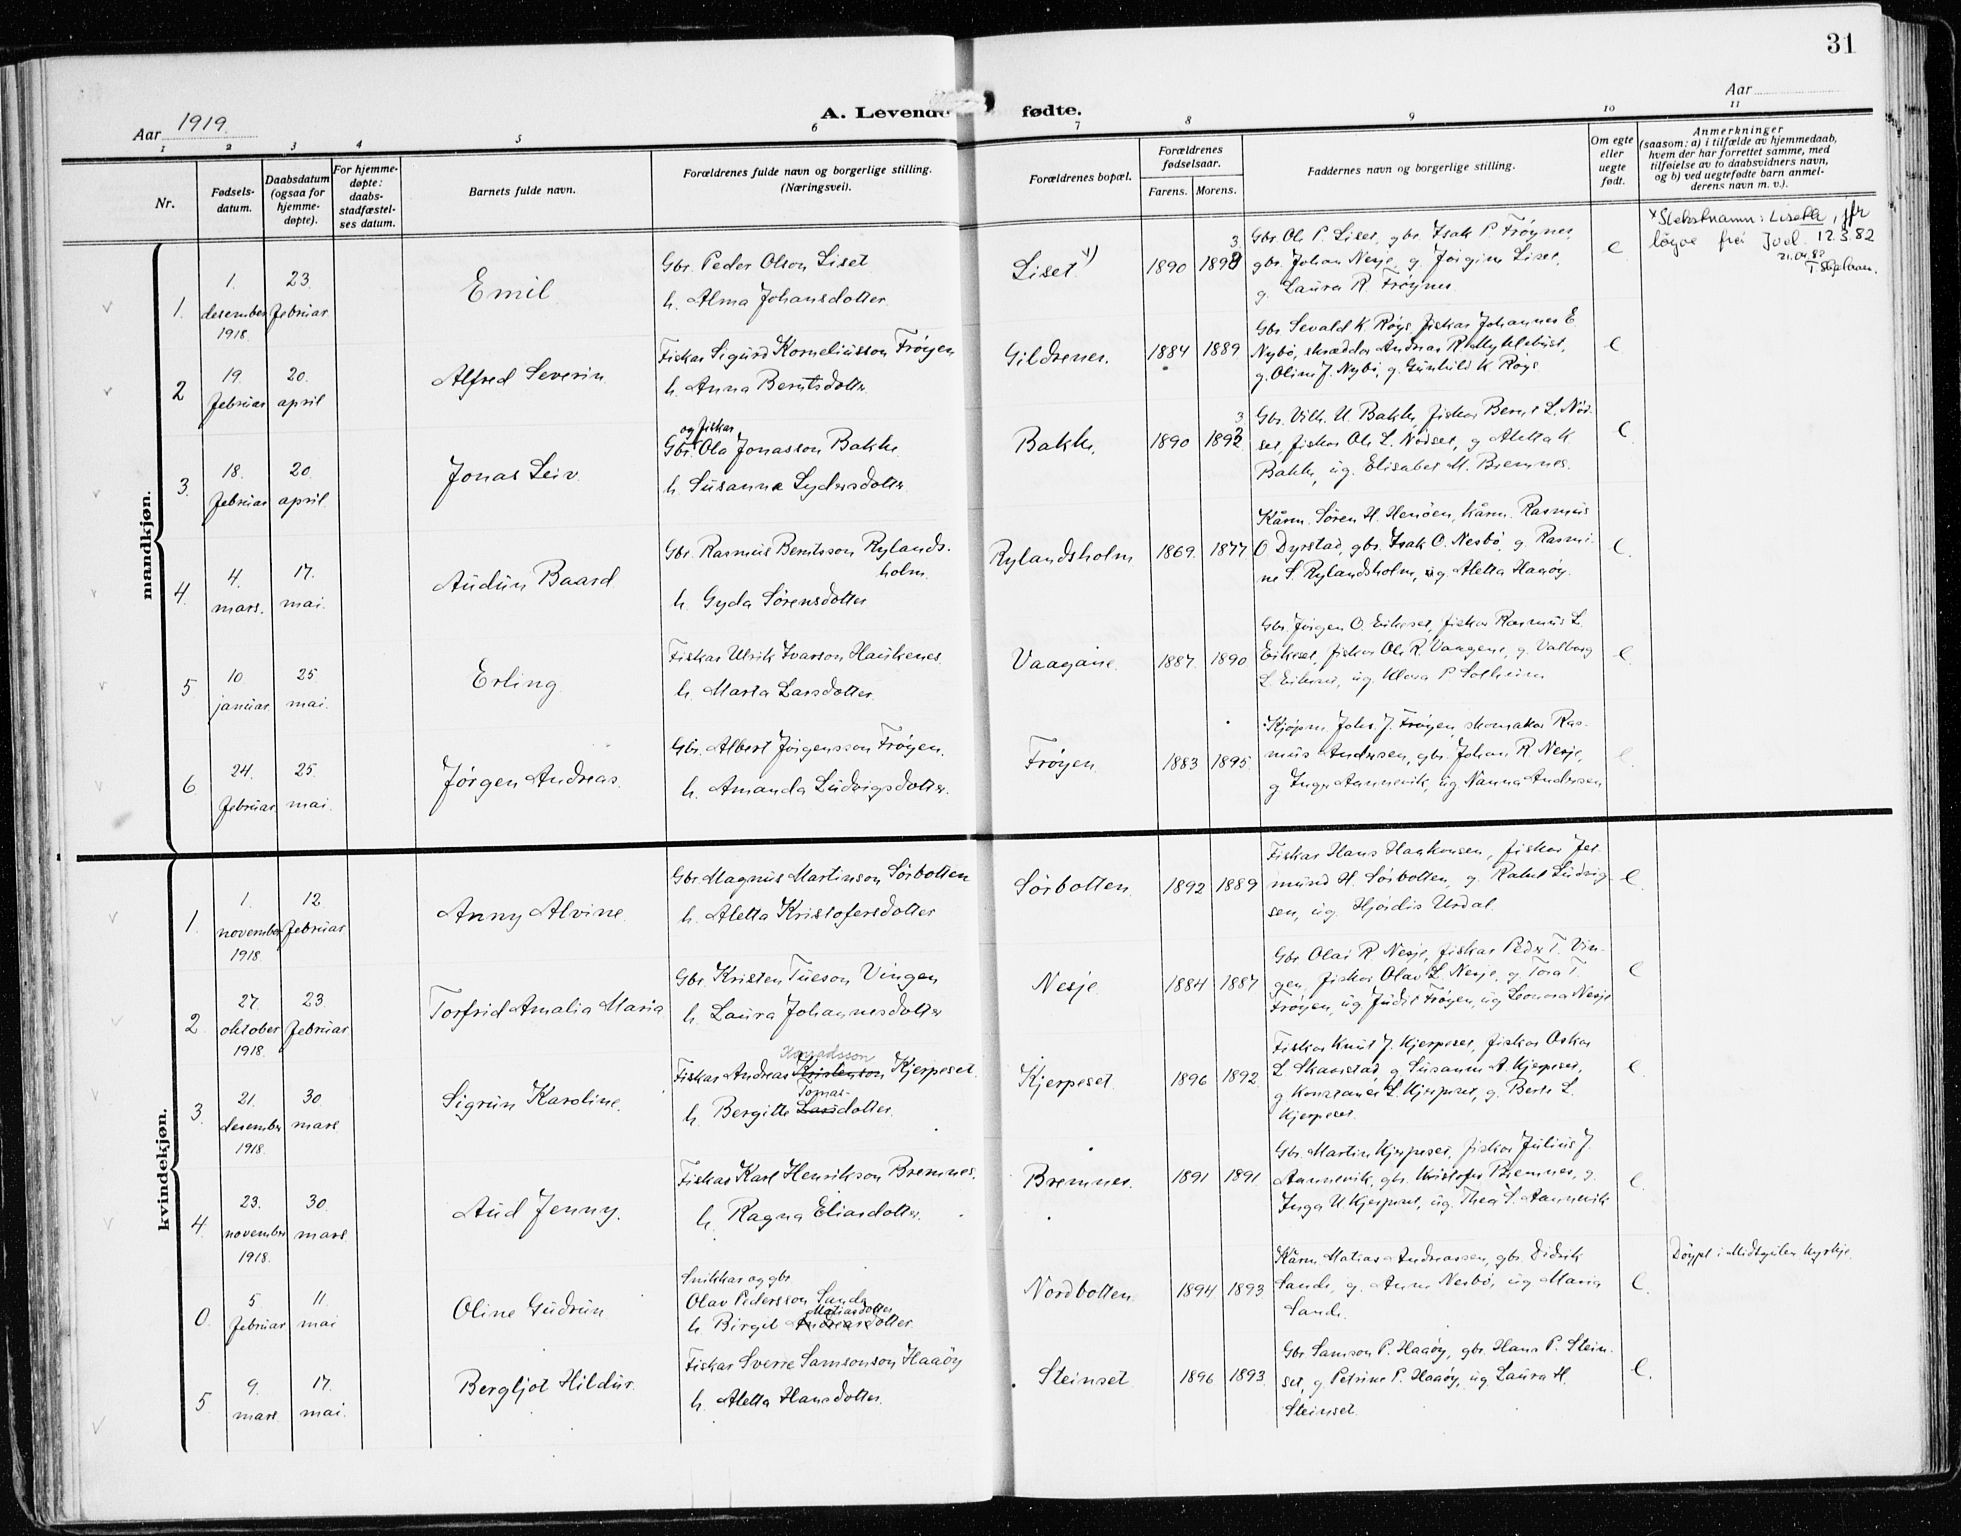 31
Aar 1919.
A. Levende fødte.
Aar
1 2 3 4 5 6 7 8 9 10 11
Nr.
Fødsels-
datum.
Daabsdatum
(ogsaa for
hjemme-
døpte).
For hjemme-
døpte:
daabs-
stadfæstel-
ses datum.
Barnets fulde navn.
Forældrenes fulde navn og borgerlige stilling.
(Næringsvei).
Forældrenes bopæl.
Forældrenes
fødselsaar.
Farens. Morens.
Faddernes navn og borgerlige stilling.
Om egte
eller
uegte
født.
Anmerkninger
(saasom: a) i tilfælde av hjemmedaab,
hvem der har forrettet samme, med
tilføielse av to daabsvidners navn,
og b) ved uegtefødte barn anmel-
derens navn m. v.).
mandkjøn.
1.
1.
desember
1918.
23.
februar
Emil
Gbr. Peder Olson Liset
h. Alma Johansdotter
Liset x)
1890
1893
Gbr. Ole P. Liset, gbr. Isak P. Frøynes,
gbr. Johan Nesje, g. Jørgine Liset,
g. Laura R. Frøynes.
e
x Slektsnamn: Liseth, jfr
løyve frå Jvd. 12.3.82
21.04.82
2
19.
februar
20.
april
Alfred Severin
Fiskar Sigurd Korneliusson Frøyen
h. Anna Berntsdotter
Gildrenes.
1884
1889
Gbr. Sevald K. Røys, fiskar Johannes E
Nybø, skrædder Andreas R. Myklebust,
g. Oline J. Nybø, g. Gunhild K. Røys
e
3.
18.
februar
20.
april.
Jonas Leiv
og fiskar
Gbr. Ola Jonasson Bakke
h. Susanne Sydersdotter
Bakke.
1890
1893
Gbr. Vilh. U. Bakke, fiskar Bernt L. Nød-
set, fiskar Ole L. Nødset, g Aletta K.
Bakke, ug. Elisabet M. Bremnes.
e
4.
4.
mars.
17.
mai.
Audun Baard
Gbr. Rasmus Berntsson Rylands-
holm.
h. Gyda Sørensdotter
Rylandsholm
1869.
1877
Kårm. Søren H. Henøen, kårm. Rasmus
O Dyrstad, gbr. Isak O. Nesbø, g Rasmi-
ne S. Rylandsholm, ug. Aletta Haaøy.
e.
5
10.
januar
25
mai.
Erling
Fiskar Ulrik Ivarson Haukenes
h. Marta Larsdotter
Vaagane.
1887.
1890
Gbr. Jørgen O. Eikeset, fiskar Rasmus L
Eikeset, fiskar Ole R. Vaagene, g. Valborg
L. Eikeset, ug. Klara P Solheim
e.
6
24.
februar
25.
mai.
Jørgen Andreas.
Gbr. Albert Jørgensson Frøyen.
h. Amanda Ludvigsdotter.
Frøyen
1883
1895
Kjøpm. Johs J. Frøyen, skomakar Ras-
mus Andersen, gbr. Johan R. Nesje,
g Inga Aannevik, ug Nanna Andersen
e.
kvindekjøn.
1.
1.
november
1918.
12.
februar
Anny Alvine
Gbr. Magnus Martinson Sørbotten
h. Aletta Kristofersdotter
Sørbotten
1892
1889
Fiskar Hans Haakonsen, fiskar Jer-
mund H. Sørbotten, g. Rakel Ludvig-
sen, ug. Hjørdis Urdal.
e.
2
27.
oktober
1918.
23
februar
Torfrid Amalia Maria
Gbr. Kristen Tueson Vingen
h. Laura Johannesdotter
Nesje
1884
1887
Gbr. Olai R Nesje, fiskar Peder T. Vin-
gen, fiskar Olav L. Nesje, g. Tora T.
Frøyen, ug Judit Frøyen, ug Leonora Nesje
e
3.
21.
desember
1918.
30
mars
Sigrun Karoline.
Konradsson
Fiskar Andreas Kristenson Kjerpeset
Tomas-
h. Bergitte Larsdotter.
Kjerpeset
1896
1892
Fiskar Knut J. Kjerpeset, fiskar Oskar
L Skamstad, g Susanne A. Kjerpeset,
g Konstanse L. Kjerpeset, g. Berte L.
Kjerpeset.
e.
4
23.
november
1918.
30.
mars
Aud Jenny.
Fiskar Karl Henrikson Bremnes.
h. Ragna Eliasdotter.
Bremnes.
1891
1891
Gbr. Martin Kjerpeset, fiskar Julius J.
Aannevik, gbr. Kristofer Bremnes, g.
Inga U. Kjerpeset, ug. Thea S. Aannevik
e.
0.
5.
februar
11.
mai
Oline Gudrun
Snikkar og gbr.
Olav Pedersson Sande
Matiasdotter
h. Birgit Andreasdotter
Nordbotten
1894
1893
Kårm Matias Andreassen, gbr. Didrik
Sande, g. Anne Nesbø, ug Maria
Sande.
e.
Døypt i Midtgulen kyrkje.
5
9.
mars
17.
mai.
Bergljot Hildur.
Fiskar Sverre Samsonson Haaöy
h. Aletta Hansdotter.
Steinset
1896
1893.
Gbr Samson P. Haaöy, gbr. Hans P. Stein-
set, g Petrine P. Haaöy, ug Laura H.
Steinset
e.